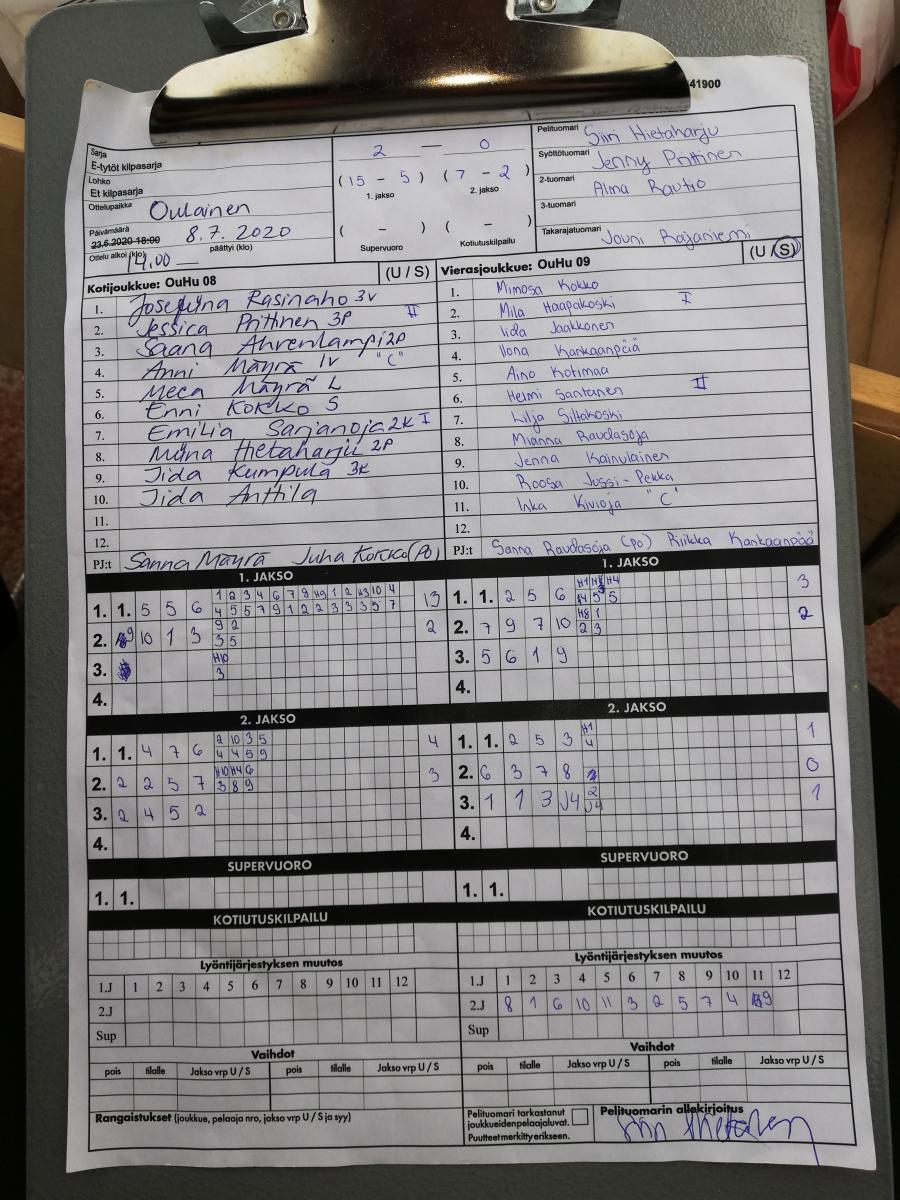 41900
Sarja
E-tytöt kilpasarja
Lohko
Et kilpasarja
Ottelupaikka Oulainen
Päivämäärä
23.6.2020 18:00 8.7.2020
Ottelu alkoi (klo) 14.00 — päättyi (klo)
2 — 0
( 15 - 5 ) ( 7 - 2 )
1. jakso 2. jakso
( - ) ( - )
Supervuoro Kotiutuskilpailu
Pelituomari Siiri Hietaharju
Syöttötuomari Jenny Prittinen
2-tuomari Alma Rautio
3-tuomari
Takarajatuomari Jouni Rajaniemi
Kotijoukkue: OuHu 08 (U / S)
1. Josefiina Rasinaho 3v
2. Jessica Prittinen 3P II
3. Saana Ahrenlampi 2P
4. Anni Mäyrä 1v "C"
5. Meea Mäyrä L
6. Enni Kokko S
7. Emilia Sarjanoja 2k I
8. Miina Hietaharju 2P
9. Iida Kumpula 3k
10. Iida Anttila
11.
12.
PJ:t Sanna Mäyrä Juha Kokko (PO)
Vierasjoukkue: OuHu 09 (U / S)
1. Mimosa Kokko
2. Mila Haapakoski I
3. Iida Jaakkonen
4. Ilona Kankaanpää
5. Aino Kotimaa
6. Helmi Santanen II
7. Lilja Siltakoski
8. Mianna Raudasoja
9. Jenna Kainulainen
10. Roosa Jussi-Pekka
11. Inka Kivioja "C"
12.
PJ:t Sanna Raudasoja (po) Riikka Kankaanpää
1. JAKSO
1 2 3 4 6 7 8 H9 1 2 H3 10 4
1. 1. 5 5 6 4 5 5 7 9 1 2 2 3 3 3 5 7 13
9 2
2. 9 10 1 3 3 5 2
H10
3. 3
4.
1. JAKSO
1. 1. 2 5 6 3
H8 1
2. 7 9 7 10 2 3 2
3. 5 6 1 9
4.
2. JAKSO
2 10 3 5
1. 1. 4 7 6 4 4 5 9 4
H10 H4 6
2. 2 2 5 7 3 8 9 3
3. 2 4 5 2
4.
2. JAKSO
H1
1. 1. 2 5 3 4 1
2. 6 3 7 8 0
2
3. 1 1 3 J4 J4 1
4.
SUPERVUORO
1. 1.
SUPERVUORO
1. 1.
KOTIUTUSKILPAILU
KOTIUTUSKILPAILU
Lyöntijärjestyksen muutos
1.J 1 2 3 4 5 6 7 8 9 10 11 12
2.J
Sup
Lyöntijärjestyksen muutos
1.J 1 2 3 4 5 6 7 8 9 10 11 12
2.J 8 1 6 10 11 3 2 5 7 4 9
Sup
Vaihdot
pois tilalle Jakso vrp U / S pois tilalle Jakso vrp U / S
Vaihdot
pois tilalle Jakso vrp U / S pois tilalle Jakso vrp U / S
Rangaistukset (joukkue, pelaaja nro, jakso vrp U / S ja syy)
Pelituomari tarkastanut
joukkueidenpelaajaluvat.
Puutteet merkitty erikseen.
Pelituomarin allekirjoitus